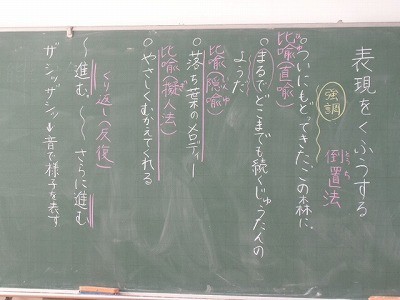 表現をくふうする
倒置法
とうち
強調
○ついにもどってきた、この森に。
比喩(直喩)
ひゆ
○まるでどこまでも続くじゅうたんの
ようだ
比喩(隠喩)
○落ち葉のメロディー
比喩(擬人法)
○やさしくむかえてくれる
くり返し(反復)
～進む。～～さらに進む
ザシッザシッ→音で様子を表す